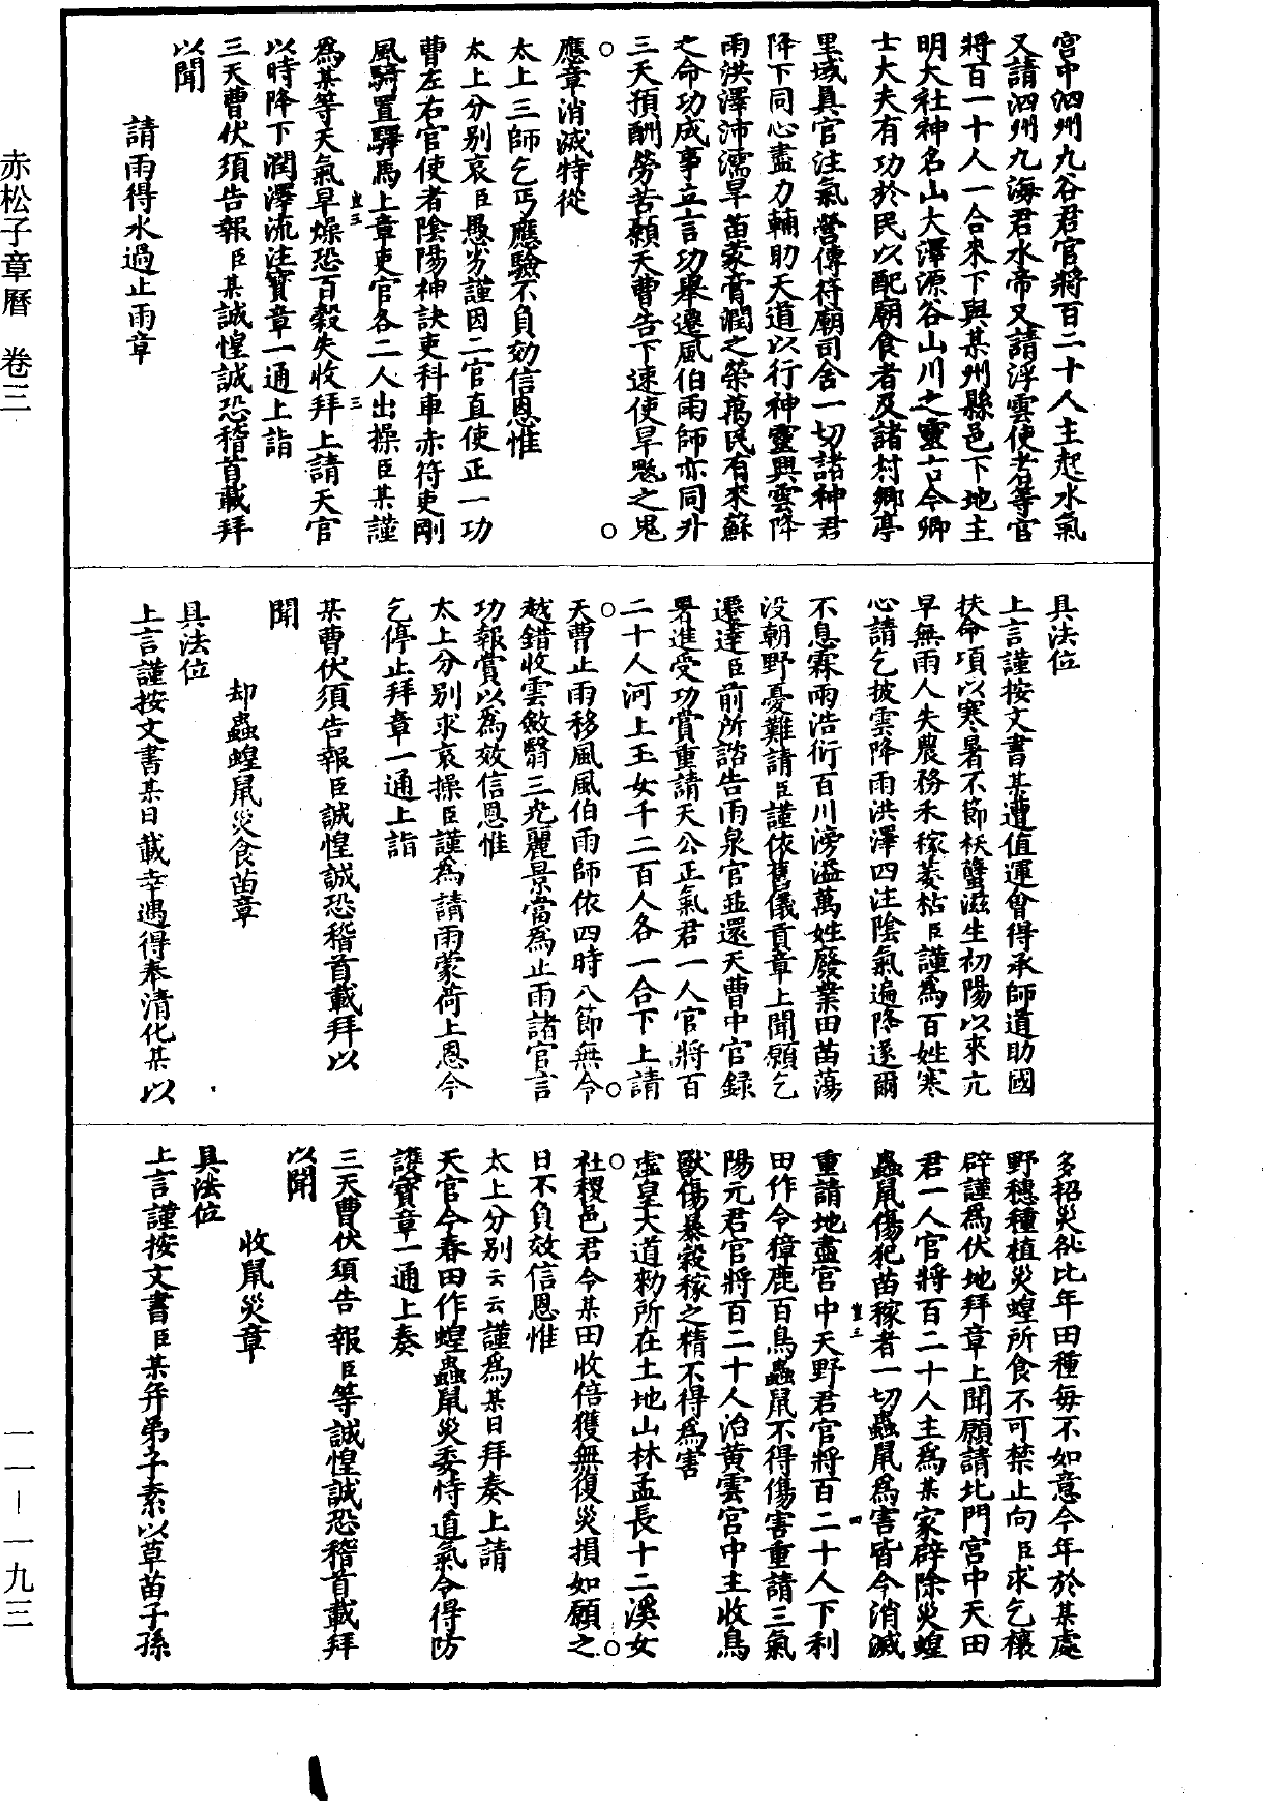 宮中泗州九谷君官將百二十人主起水氣
又請泗州九海君水帝又請浮雲使者等官
將百一十人一合來下與某州縣邑下地主
明大社神名山大澤源谷山川之靈古今卿
士大夫有功於民以配廟食者及諸村鄉亭
里域真官注氣營傳符廟司舍一切諸神君
降下同心盡力輔助天道以行神靈興雲降
雨洪澤沛濡旱苗蒙膏潤之榮萬民有來蘇
之命功成事立言功舉遷風伯雨師亦同升
三天預酬勞苦願天曹告下速使旱魃之鬼
應章消滅特從
太上三師乞丐應驗不負効信恩惟
太上分別哀臣愚劣謹因二官直使正一功
曹左右官使者陰陽神訣吏科車赤符吏剛
風騎置驛馬上章吏官各二人出操臣某謹
為某等天氣旱燥恐百穀失收拜上請天官
以時降下潤澤流注寶章一通上詣
三天曹伏須告報臣某誠惶誠恐稽首載拜
以聞
請雨得水過止雨章
具法位
上言謹按文書某遭值運會得承師道助國
扶命項以寒暑不節妖孽滋生初陽以來亢
旱無雨人失農務禾稼萎枯臣謹為百姓寒
心請乞披雲降雨洪澤四注陰氣遍降遂爾
不息霖雨浩衍百川滂溢萬姓廢業田苗蕩
沒朝野憂難請臣謹依舊儀貢章上聞願乞
遷達臣前所諮告雨泉官並還天曹中官録
署進受功賞重請天公正氣君一人官將百
二十人河上玉女千二百人各一合下上請
天曹止雨移風風伯雨師依四時八節無令
越錯收雲斂翳三光麗景當為止雨諸官言
功報賞以為效信恩惟
太上分別求哀操臣謹為請雨蒙荷上恩今
乞停止拜章一通上詣
某曹伏須告報臣誠惶誠恐稽首載拜以
聞
却蟲蝗鼠災食苗章
具法位
上言謹按文書某日載幸遇得奉清化某以
多招災咎比年田種每不如意今年於某處
野穗種植災蝗所食不可禁止向臣求乞禳
辟謹為伏地拜章上聞願請北門宮中天田
君一人官將百二十人主為某家辟除災蝗
蟲鼠傷犯苗稼者一切蟲鼠為害皆令消滅
重請地盡宮中天野君官將百二十人下利
田作令獐鹿百鳥蟲鼠不得傷害重請三氣
陽元君官將百二十人治黃雲宮中主收鳥
獸傷暴穀稼之精不得為害
虛皇大道勑所在土地山林孟長十二溪女
社稷邑君令某田收倍獲無復災損如願之
日不負效信恩惟
太上分別云云謹為某日拜奏上請
天官今春田作蝗蟲鼠災委恃道氣令得防
護寶章一通上奏
三天曹伏須告報臣等誠惶誠恐稽首載拜
以聞
收鼠災章
具法位
上言謹按文書臣某弁弟子素以草苗子孫
赤松子章曆　卷三
一一—一九三